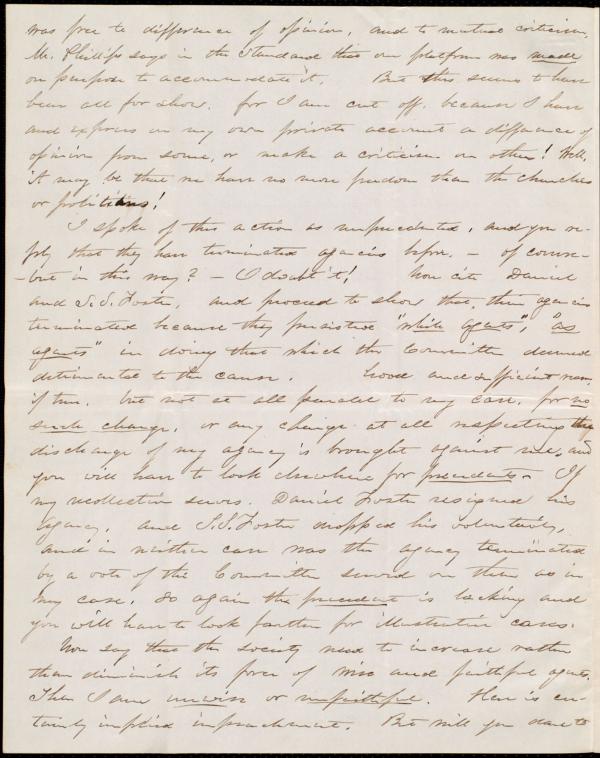 was free to difference of opinion, and to mutual criticism.
Mr. Phillips says in the Standard that our platform was made
on purpose to accommodate it. But this seems to have
been all for show. for I am cut off, because I have
and express on my own private account a difference of
opinion from some, or make a criticism on others! Well,
it may be that we have no more freedom than the churches
or politicians!
I spoke of this action as unprecedented, and you re-
ply that they have terminated agencies before. - of course -
- but in this way? - I doubt it! You cite Daniel
and S. S. Foster, and proceed to show that their agencies
terminated because they persisted "while agents", "as
agents" in doing that which the Committee deemed
detrimental to the cause. Good and sufficient reason
if true. but not at all parallel to my case, for no
such charge, or any charge at all respecting the
discharge of my agency is brought against me, and
you will have to look elsewhere for precedents. If
my recollection serves, Daniel Foster resigned his
agency, and S. S. Foster dropped his voluntarily,
and in neither case was the agency terminated
by a vote of the Committee served on them as in
my case. So again the precedent is lacking and
you will have to look farther for illustrative cases.
You say that the society need to increase rather
than diminish its force of wise and faithful agents.
Then I am unwise or unfaithful. Here is cer-
tainly implied impeachment. But will you dare to